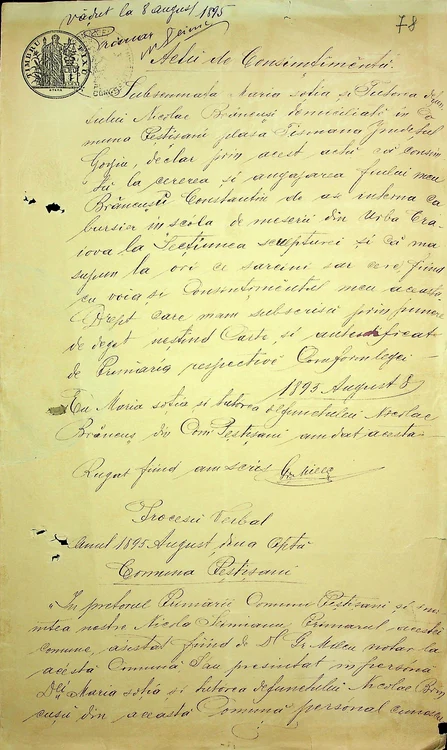 văḑut la 8 august 1895
Primar
78
TIMBRU FIX
Actu de Consimțimêntă.
Subsemnata Maria soția și Tutorea defu
sului Nicolae Brâncuși domiciliată în Co
muna Peștișani plasa Tismana județul
Gorjiu, declar prin acest actŭ că consim
tŭ la cererea și angajarea fiului meu
Brâncuși Constantin de as interna ca
bursier in scola de meserii din Urba Cra
iova la Secțiunea sculpturei și că mă
supun la ori ce sarcini sar cere, fiind
cu voia și Consențimêntul meu aceasta
Drept care mam subscrisŭ prin punere
de deget neștiind Carte, și autentificat
de Primăria respectivĕ Conform legei
1895 August 8
Eu Maria soția și tutorea defunctului Nicolae
Brâncuș din Com Peștișani am dat acesta
Rugat fiind am scris
Procesŭ Verbal
Anul 1895 August diua Optŭ
Comuna Peștișani
In pretoriul Primăriĭ Comuneĭ Peștișani și ina
intea nostre Nicola Primarul acestei
comune, asistat fiind de Dl Gr. notar la
acestă Comună Sau presintat in persónă
Maria soția și tutorea defunctului Nicolae Brîn
cușiŭ din aceasta Comună personal cunoscu